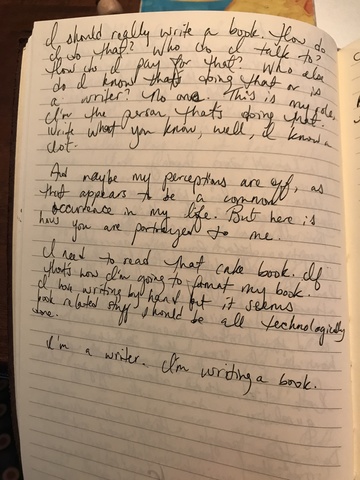 I should really write a book. How do
I do that? Who do I talk to?
How do I pay for that? Who else
do I know thats doing that or is
a writer? No one. This is my role,
I'm the person thats doing that.
Write what you know, well, I know a
lot.
And maybe my perceptions are off, as
that appears to be a common
occurrence in my life. But here is
how you are portrayed to me.
I need to read that cake book. If
that's how I'm going to format my book.
I love writing by hand but it seems
book related stuff should be all technologically
done.
I'm a writer. I'm writing a book.